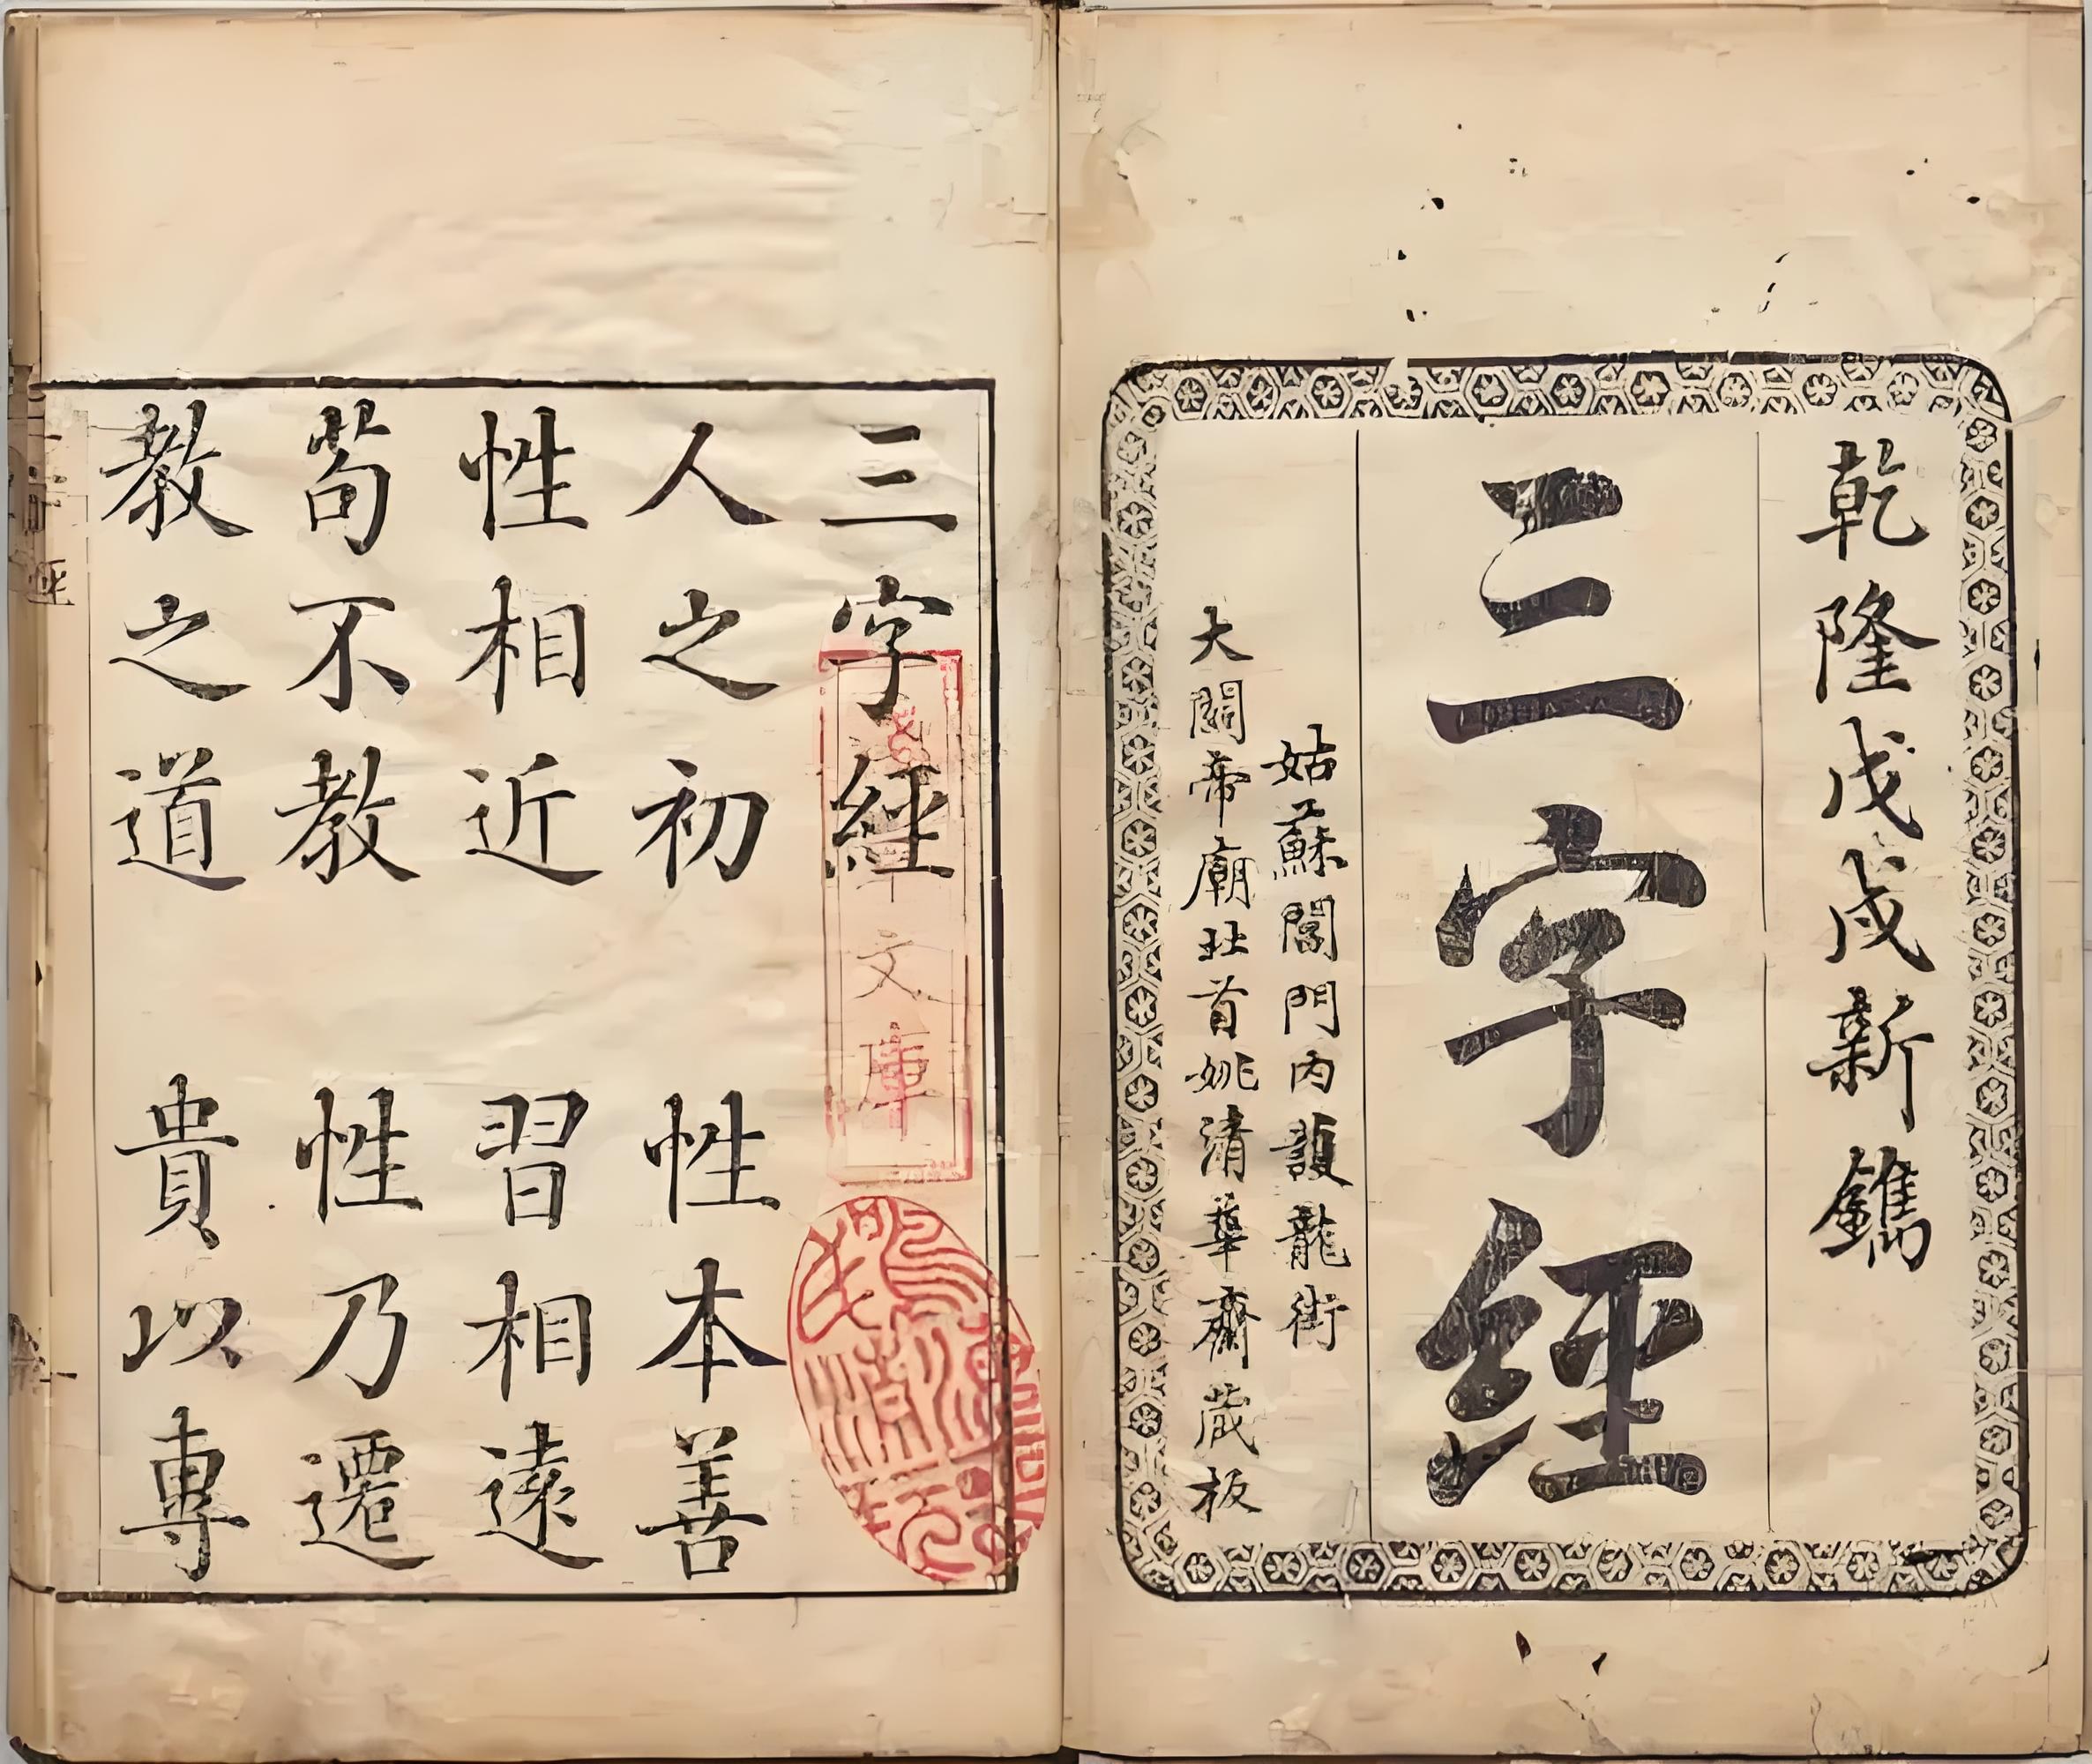 乾隆戊戌新鐫
三字經
姑蘇閶門內護龍街
大關帝廟北首姚清華齋藏板
三字經
人之初 性本善
性相近 習相遠
茍不教 性乃遷
教之道 貴以專
文庫